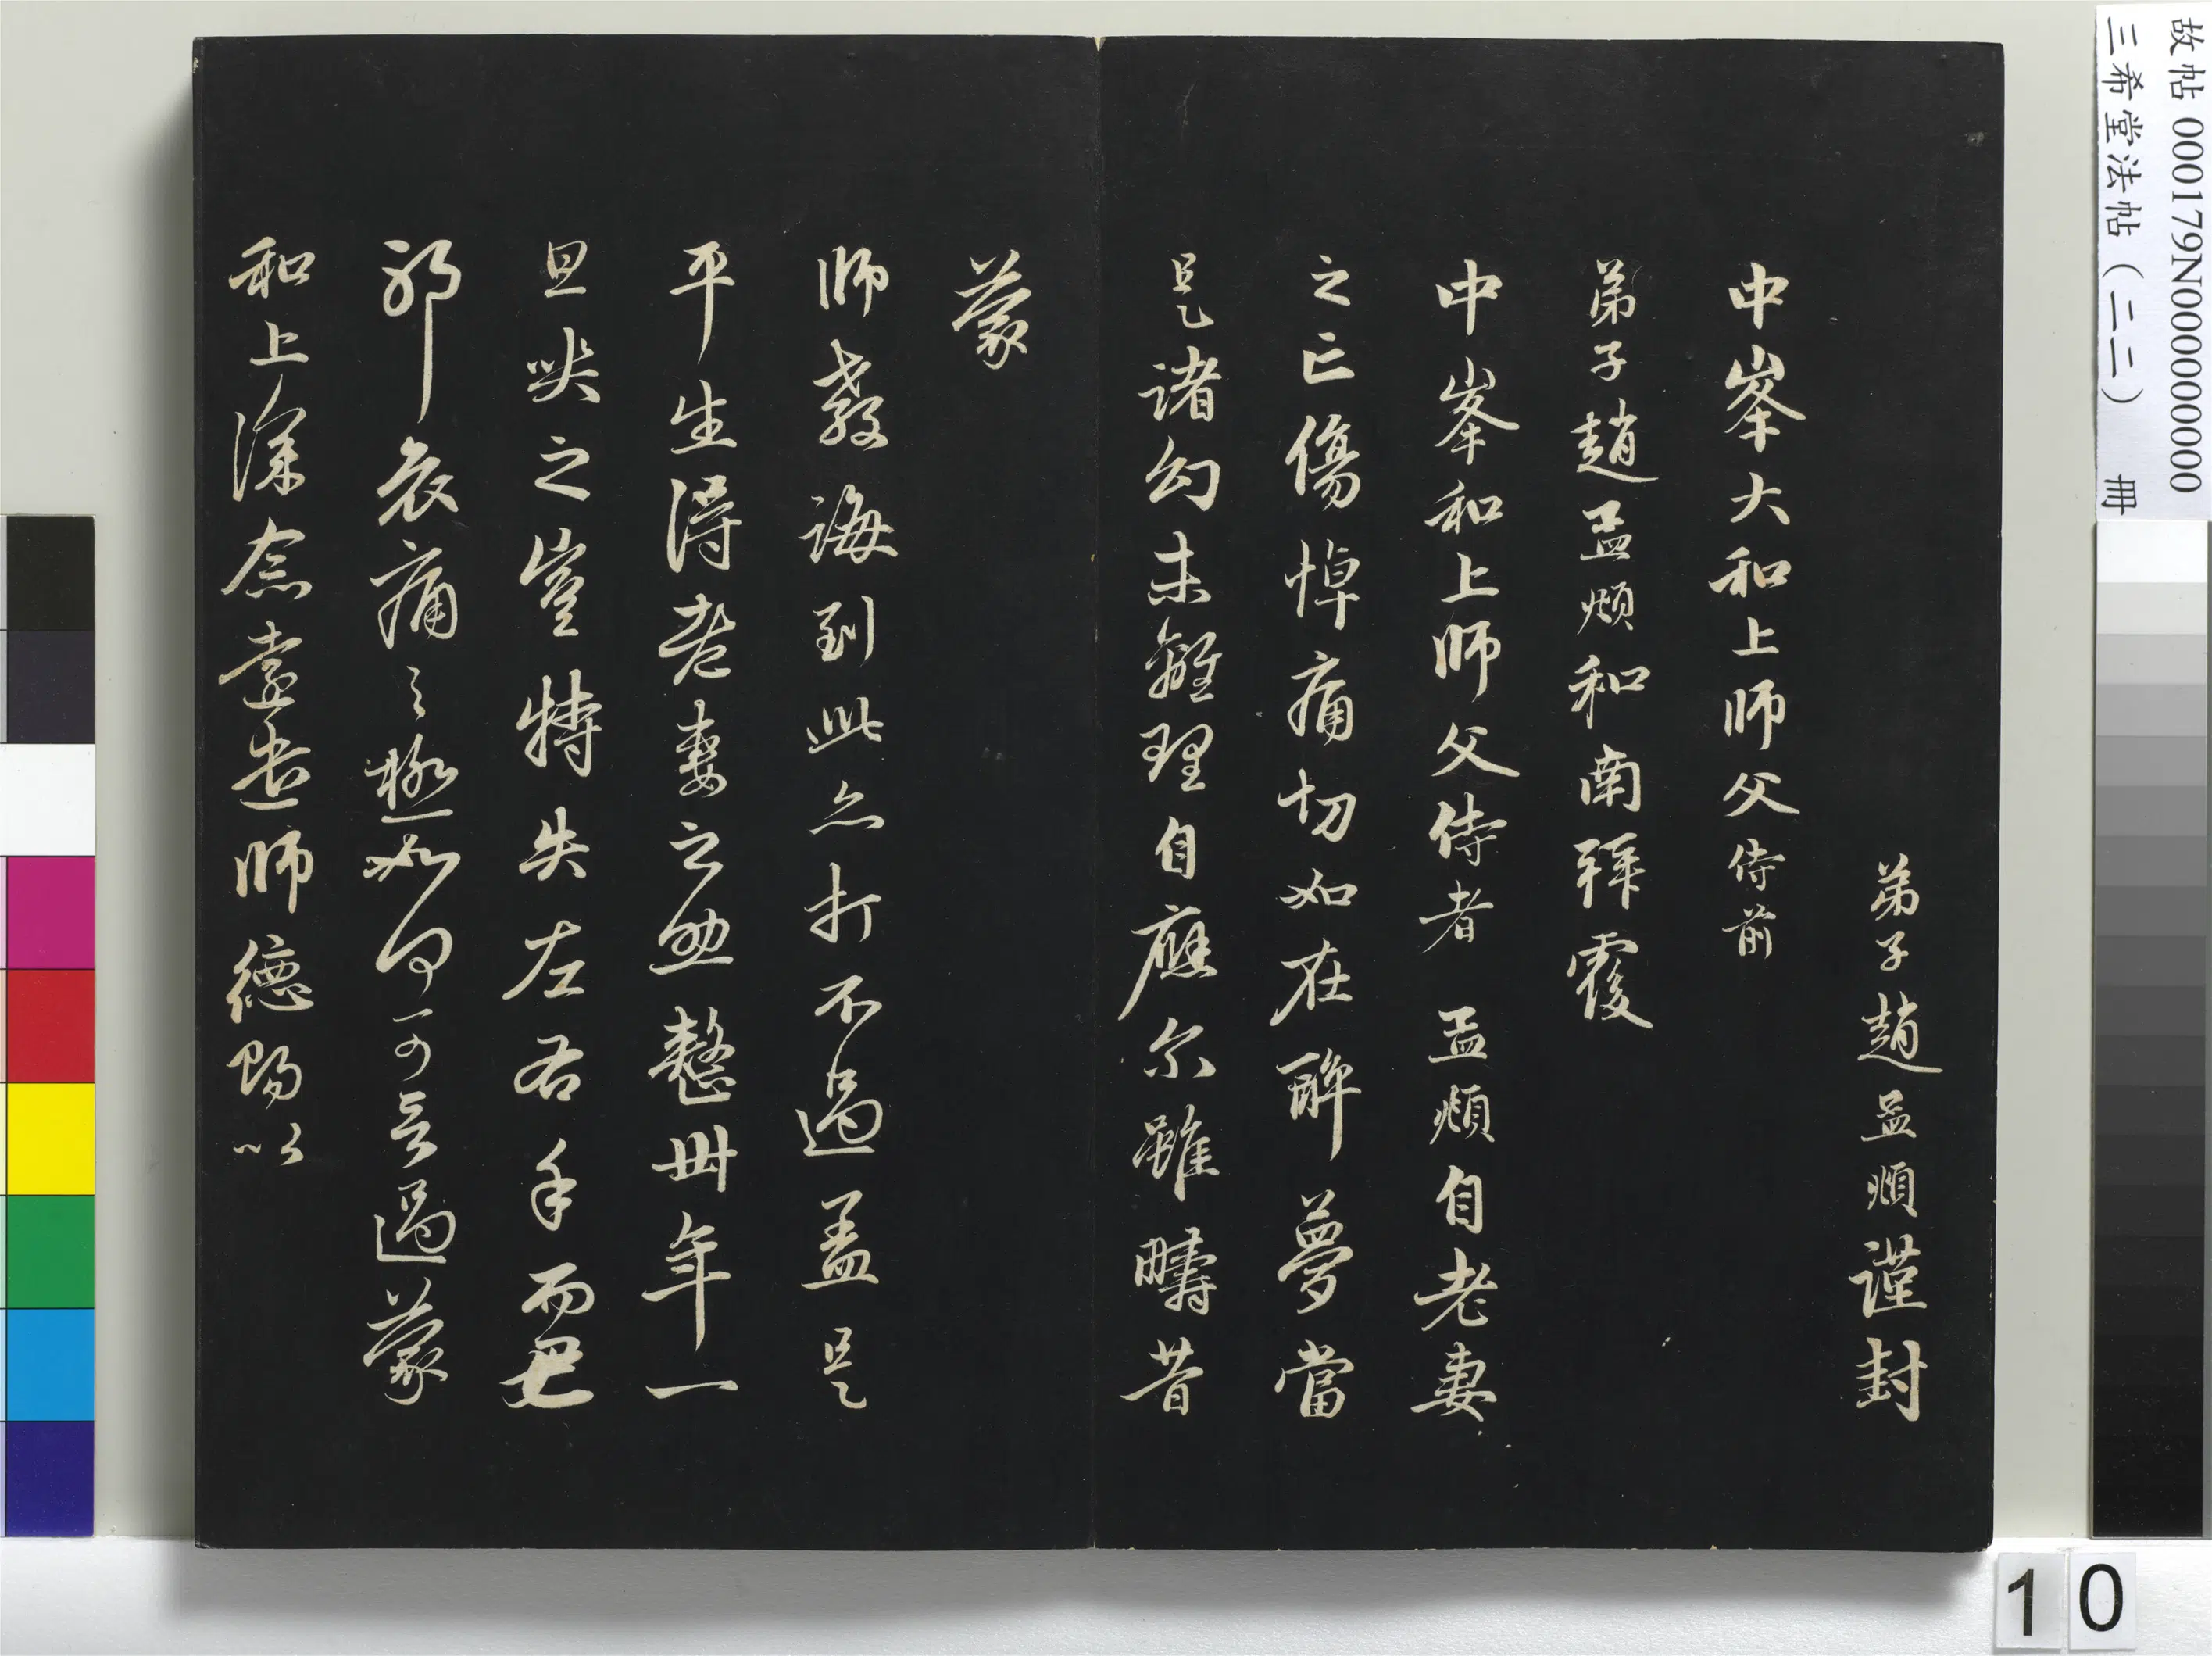 弟子趙孟頫謹封
中峯大和上師父侍前
弟子趙孟頫和南拜覆
中峯和上師父侍者 孟頫自老妻
之亡傷悼痛切如在醉夢當
是諸幻未離理自應尔雖疇昔
蒙
師教誨到此亦打不過盖是
平生得老妻之助整卅年一
旦哭之豈特失左右手而已
耶哀痛之極如何可言過蒙
和上深念遠遣師德賜以
故帖 000179N000000000
三希堂法帖（二二） 冊
10